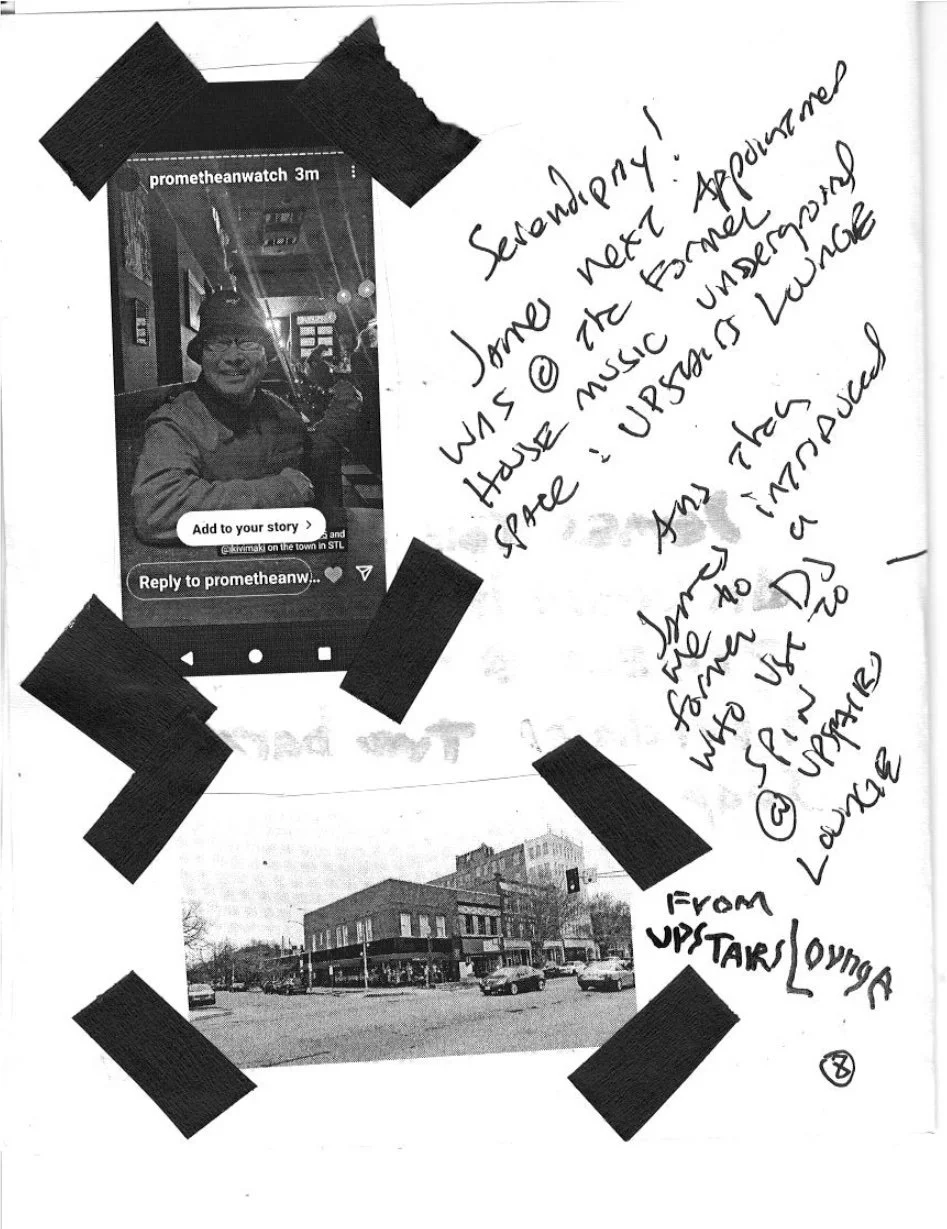 prometheanwatch 3m
Add to your story >
and
@kivimaki on the town in STL
Reply to prometheanw...
Serendipity!
James next Appointment
was @ the Former
House music underground
space: UPSTAIRS LOUNGE
And then
James introduced
me to a
former DJ
who use to
SPIN
@ UPSTAIRS
LOUNGE
From
UPSTAIRS Lounge
8